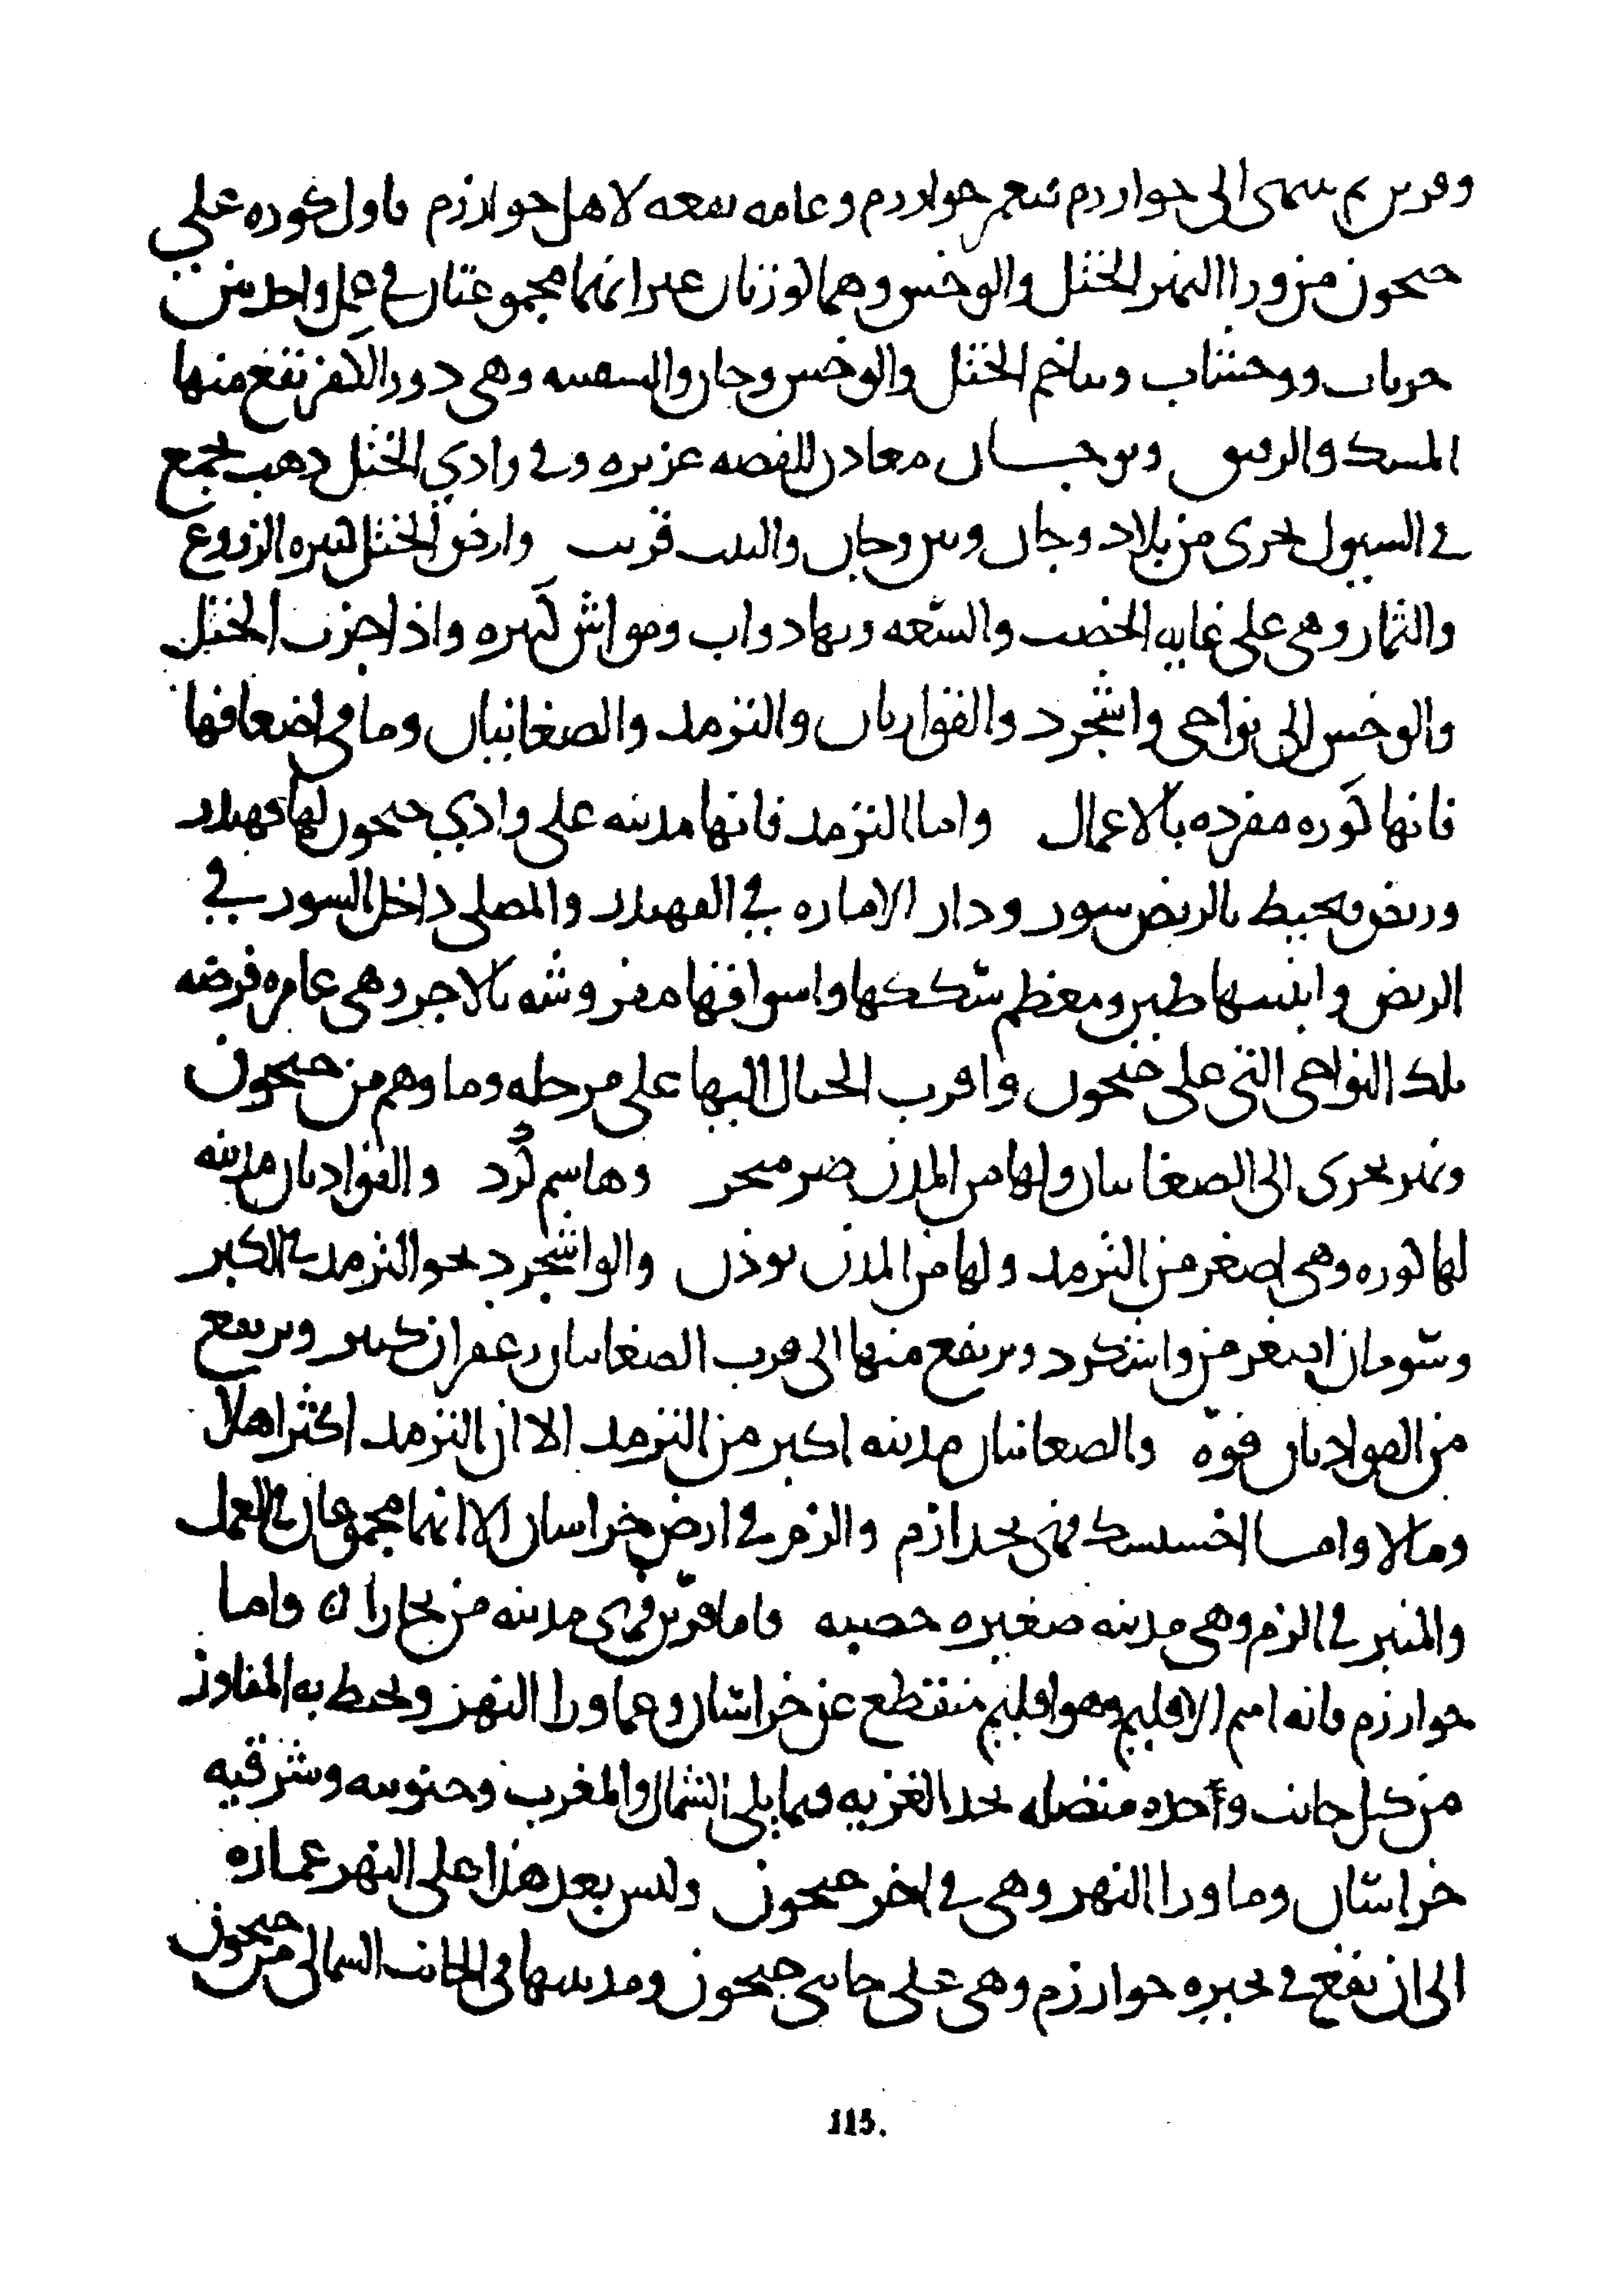 وفربر ثم ينتهى الى خوارزم فيعمر خوارزم وعامه نفعه لاهل خوارزم فاول كوره على
جيحون من ورا النهر الختل والوخش وهما كورتان غير انهما مجموعتان في عمل واحد بين
جرياب ووخشاب ويتاخم الختل والوخش وجان والسقنيه وهى دور الكفر يقع منها
المسك والرقيق وبوجان معادن للفضه غزيره وفى وادي الختل ذهب يجمع
في السيول يجرى من بلاد وجان وبين وجان والتبت قريب وارض الختل كثيره الزروع
والثمار وهى على غايه الخصب والسعه وبها دواب ومواش كثيره واذا جزت الختل
والوخش الى نواحى واشجرد والقواديان والترمذ والصغانيان وما فى اضعافها
فانها كوره مفرده بالاعمال واما الترمذ فانها مدينه على وادي جيحون لها قهندز
وربض ويحيط بالربض سور ودار الاماره في القهندز والمصلى داخل السور في
الربض وابنيتها طين ومعظم سككها واسواقها مفروشه بالاجر وهى عامره فرضه
تلك النواحى التى على جيحون واقرب الجبال اليها على مرحله وماوهم من جيحون
ونهر يجرى الى الصغانيان ولها من المدن صرمنجى وهاشم كرد والقواديان مدينه
لها كوره وهى اصغر من الترمذ ولها من المدن نوذن والواشجرد نحو الترمذ في الكبر
وشومان اصغر من واشكرد ويرتفع منها الى قرب الصغانيان زعفران كثير ويرتفع
من القواديان فوّه والصغانيان مدينه اكبر من الترمذ الا ان الترمذ اكثر اهلا
ومالا واما اخسيسك فهى بحذا زم والزم في ارض خراسان الا انهما مجموعان في العمل
والمنبر في الزم وهى مدينه صغيره خصبه فاما فربر فهى مدينه من بخارا ٥ واما
خوارزم فانه اسم الاقليم وهو اقليم منقطع عن خراسان وعما ورا النهر ويحيط به المفاوز
من كل جانب وأحده متصله بحد الغزيه فيما يلى الشمال والمغرب وجنوبيه وشرقيه
خراسان وما ورا النهر وهى في اخر جيحون وليس بعد هذا على النهر عماره
الى ان يقع في بحيره خوارزم وهى على جانبى جيحون ومدينتها فى الجانب الشمالى من جيحون
115.